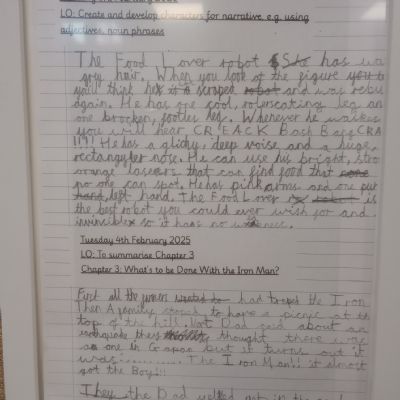 LO: Create and develop characters for narrative, e.g. using
adjectives, noun phrases
The Food Lover robot She has wa
gry hair. When you look at the figure you
you'll think he is a scraped robot and was rebu
again. He has one cool, rolerscating leg an
one brocken, footles leg. Whenever he walkes
you will hear CREACK Bash Bang CRA
!!!! He has a glichy, deep voise and a huge
rectangyler nose. He can use his bright, stro
orange lasears that can find food that
no one can spot. He has pink arms and one pur
hand, left hand. The Food Lover robot is
the best robot you could ever wish for and
invinsible so it has no
Tuesday 4th February 2025
LO: To summarise Chapter 3
Chapter 3: What's to be Done With the Iron Man?
First all the had traped the Iron
Then A family to have a picnic at th
top of the hill. Dad said about an
earthquake they thought there was
one in but it turns out it
was............. The Iron Man!! it almost
got the Boy!!!
the Dad not in the